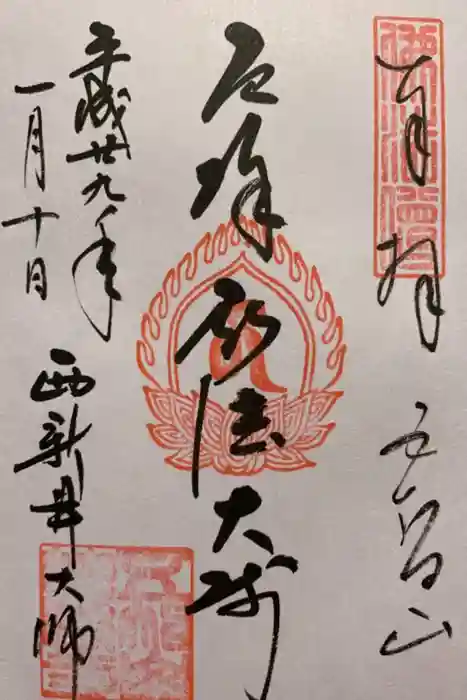 奉拝
五智山
厄除
弘法大師
平成廿九年
一月十日
西新井大師